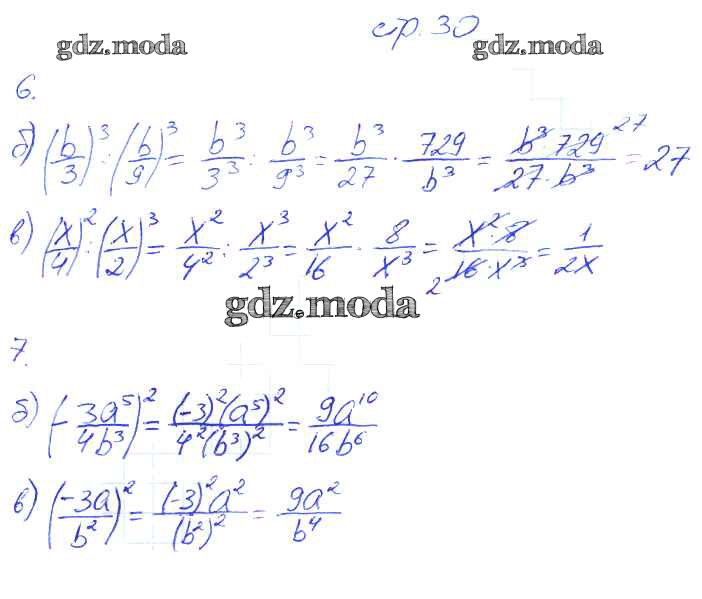 стр. 30
gdz.moda gdz.moda
6.
б) (b/3)^3 : (b/9)^3 = b^3/3^3 : b^3/9^3 = b^3/27 · 729/b^3 = b^3 729 27/27 · b^3 = 27
в) (x/4)^2 : (x/2)^3 = x^2/4^2 : x^3/2^3 = x^2/16 · 8/x^3 = x^2 · 8/2 16 · x^3 = 1/2x
gdz.moda
7.
б) (- 3a^5/4b^3)^2 = (-3)^2(a^5)^2/4^2(b^3)^2 = 9a^10/16b^6
в) (-3a/b^2)^2 = (-3)^2a^2/(b^2)^2 = 9a^2/b^4